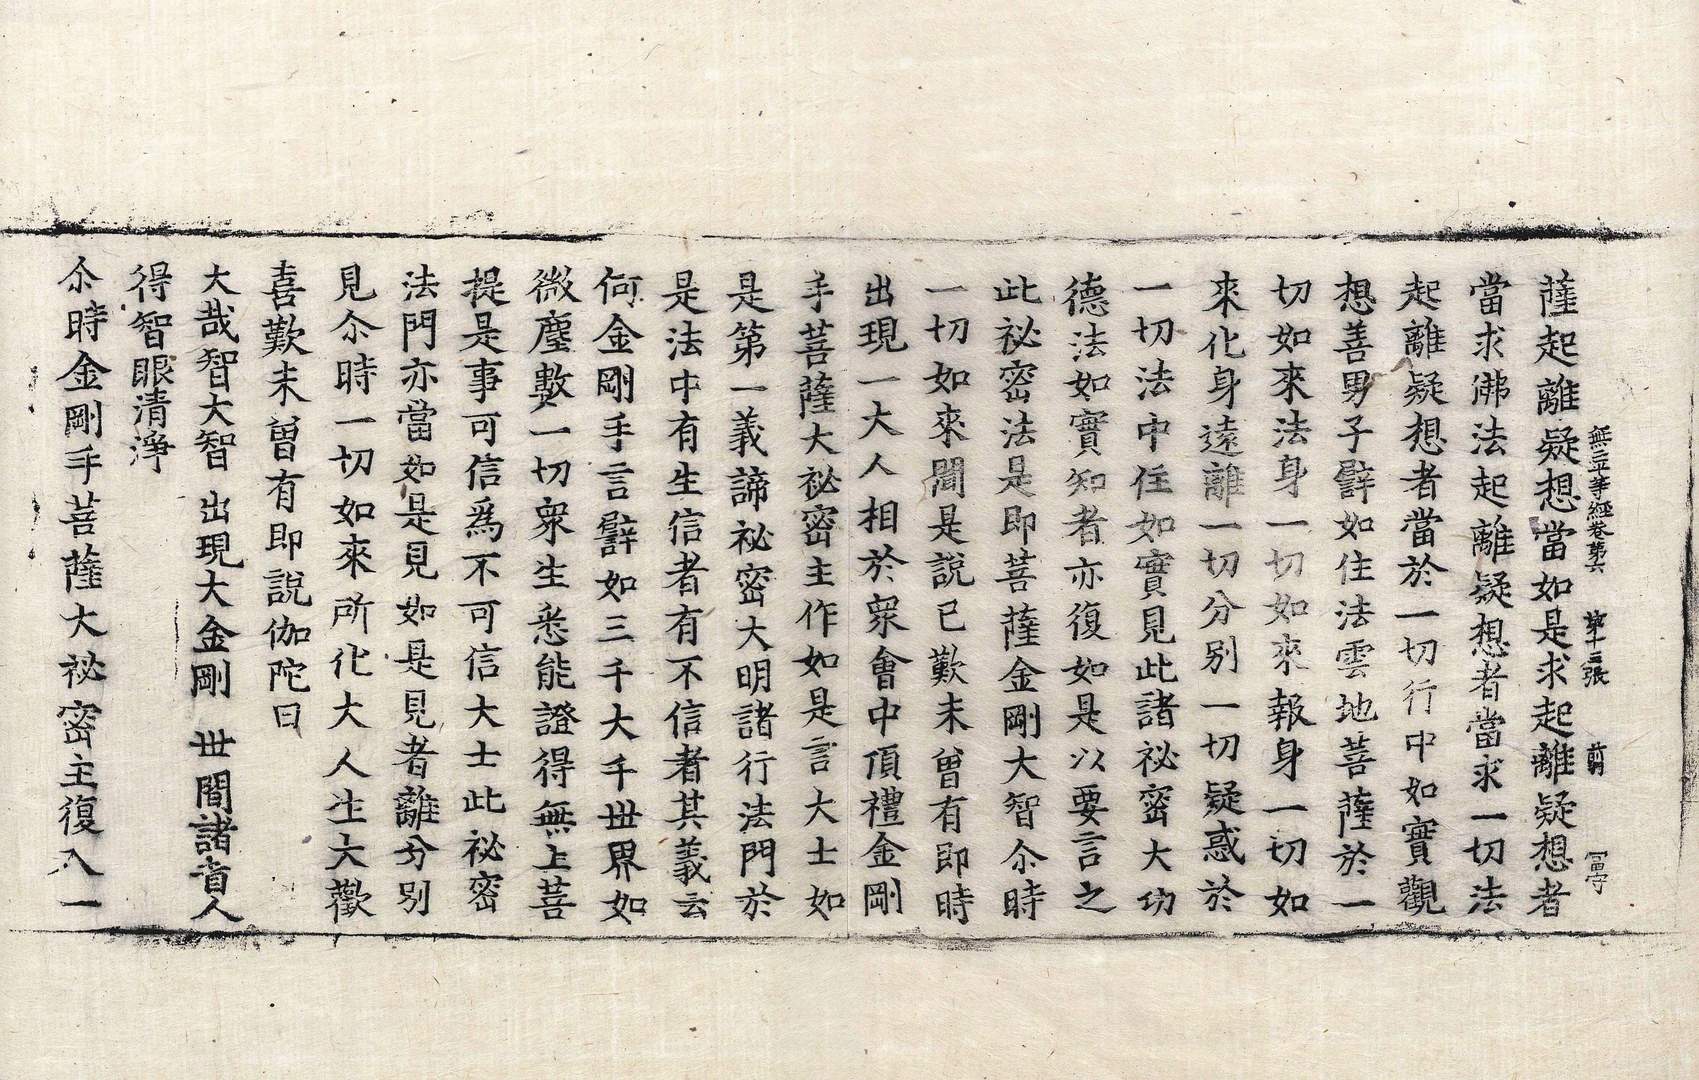 無二平等經卷第六 第十三張 前
薩起離疑想當如是求起離疑想者
當求佛法起離疑想者當求一切法
起離疑想者當於一切行中如實觀
想善男子譬如住法雲地菩薩於一
切如來法身一切如來報身一切如
來化身遠離一切分別一切疑惑於
一切法中住如實見此諸祕密大功
德法如實知者亦復如是以要言之
此祕密法是即菩薩金剛大智尒時
一切如來聞是說已歎未曾有即時
出現一大人相於衆會中頂禮金剛
手菩薩大祕密主作如是言大士如
是第一義諦祕密大明諸行法門於
是法中有生信者有不信者其義云
何金剛手言譬如三千大千世界如
微塵數一切衆生悉能證得無上菩
提是事可信爲不可信大士此祕密
法門亦當如是見如是見者離分別
見尒時一切如來所化大人生大歡
喜歎未曾有即說伽陀曰
大哉智大智 出現大金剛 世間諸盲人
得智眼清淨
尒時金剛手菩薩大祕密主復入一